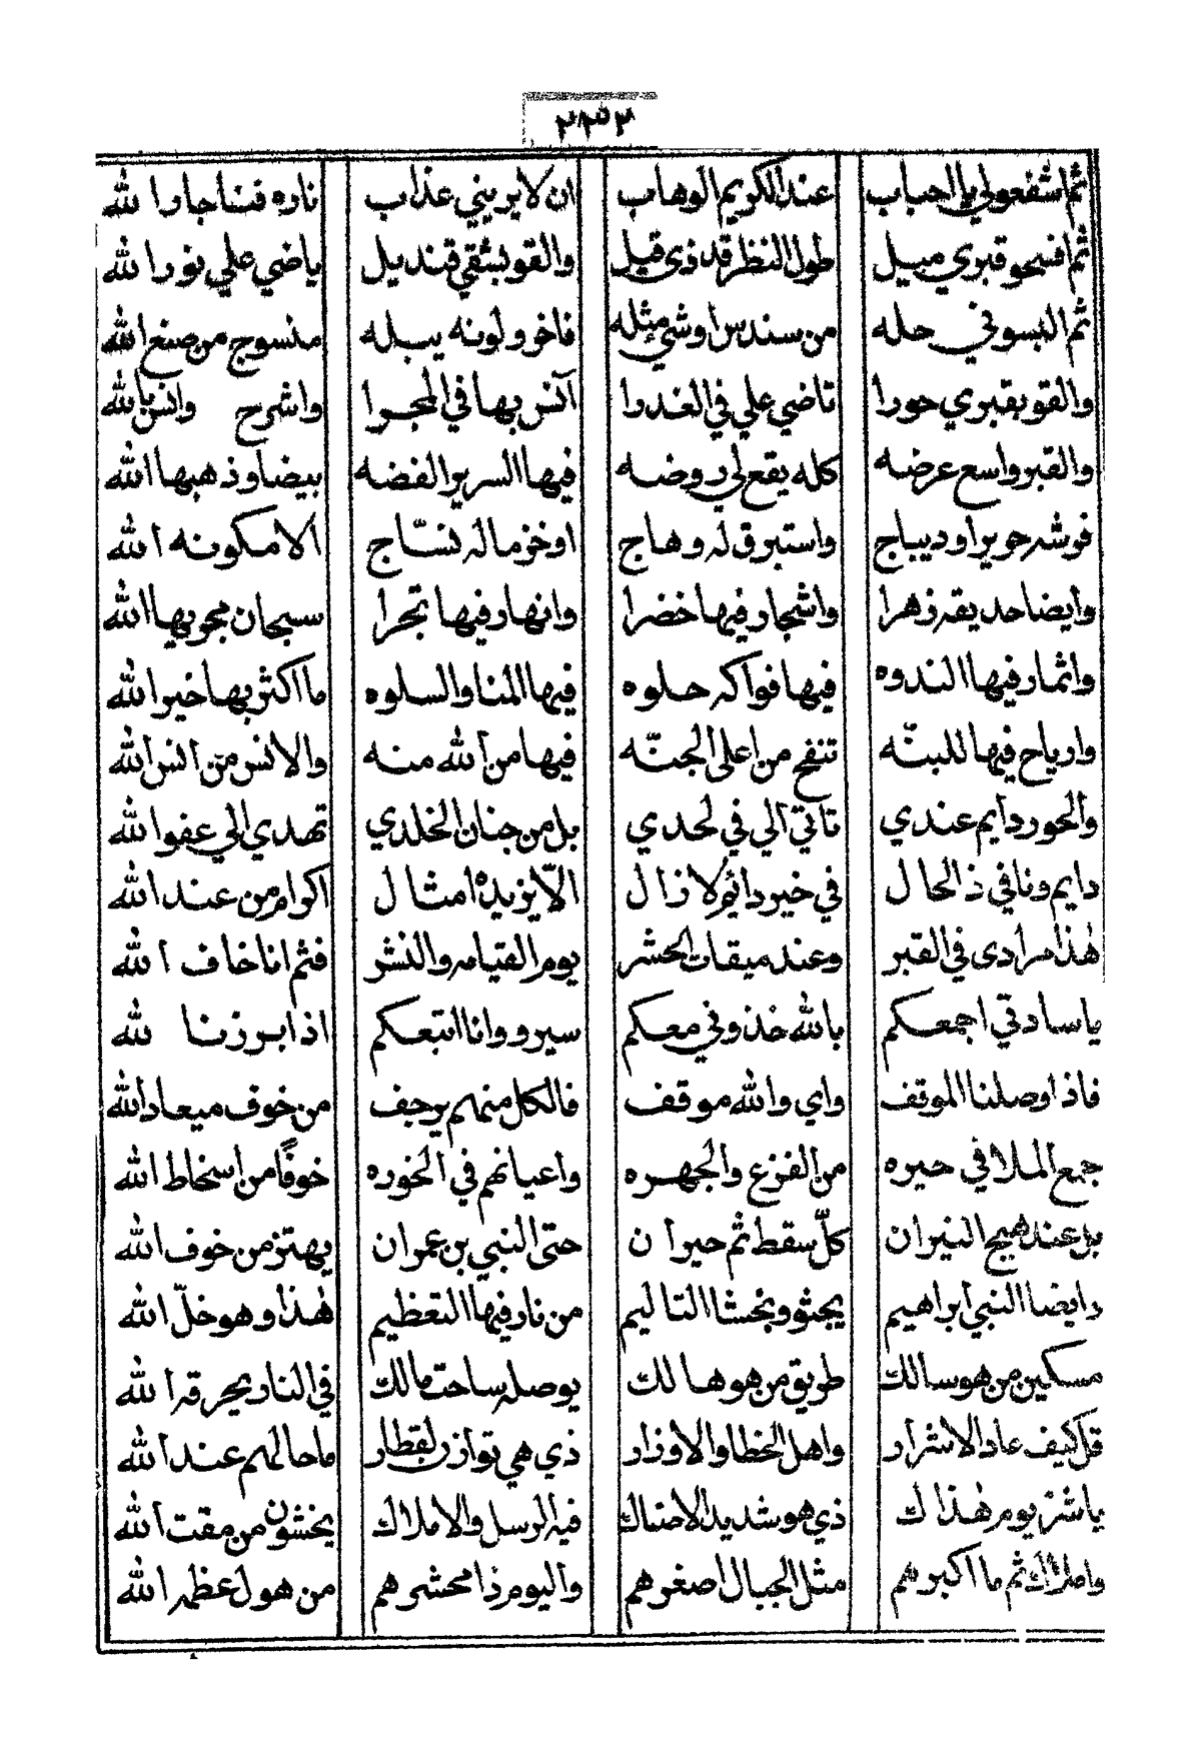 ثم اشفعولي يا احباب عند الكريم الوهاب ان لا يريني عذاب ناره فنناجارا لله
ثم افسحو قبري ميل طول النظر قد ذي قيل والقو بشقي قنديل ياضي علي نورا لله
ثم البسوني حله من سندس اوشي مثله فاخر ولونه يبله منسوج من صنع الله
والقو بقبري حورا تاضي علي في الغدرا آنس بها في المجرا واشرح وانس بالله
والقبر واسع عرضه كله يقع لي روضه فيها السرير الفضه بيضا وذهبها الله
فرشه حرير اوديباج واستبرق له وهاج اوخز ماله نساج الا مكونه الله
وايضا حديقه زهرا واشجار فيها خضرا وانهار فيها تجرا سبحان مجريها الله
واثمار فيها الندوه فيها فواكه حلوه فيها المنا والسلوه ما اكثر بها خيرا لله
وارياح فيها للبنّه تنفح من اعلى الجنّه فيها من الله منه والانس من انس الله
والحور دايم عندي تاتي الي في لحدي بل من جنان الخلدي تهدي الي عفوا لله
دايم ونا في ذ الحال في خير دائم لا زال الّا يزيده امثال اكرام من عند الله
هذا مرادى في القبر وعند ميقات الحشر يوم القيامه والنشر فثم انا خاف الله
يا سادتي اجمعكم بالله خذوني معكم سيرو وانا اتبعكم اذا برزنا لله
فاذا وصلنا الموقف واي والله موقف فالكل منهم يرجف من خوف ميعاد الله
جمع الملا في حيره من الفزع والجهره واعيانهم في الخوره خوفًا من اسخاط الله
بل عند هيج النيران كلّ سقط ثم حيران حتى النبي بن عمران يهتز من خوف الله
وايضا النبي ابراهيم يجثو ويخشا التاليم من نار فيها التعظيم هذا وهو خلّ الله
مسكين من هو سالك طريق من هو هالك يوصل ساحت مالك في النار يحرقه الله
قل كيف عاد الاشرار واهل الخطا والاوزار ذي هي توازن لقطار ما حالهم عند الله
يا شرّ يوم هذاك ذي هو شديد الاحناك فيه الرسل والاملاك يخشون من مقت الله
واملاك ثم ما اكبرهم مثل الجبال اصغرهم واليوم ذا محشرهم من هول عظمه الله